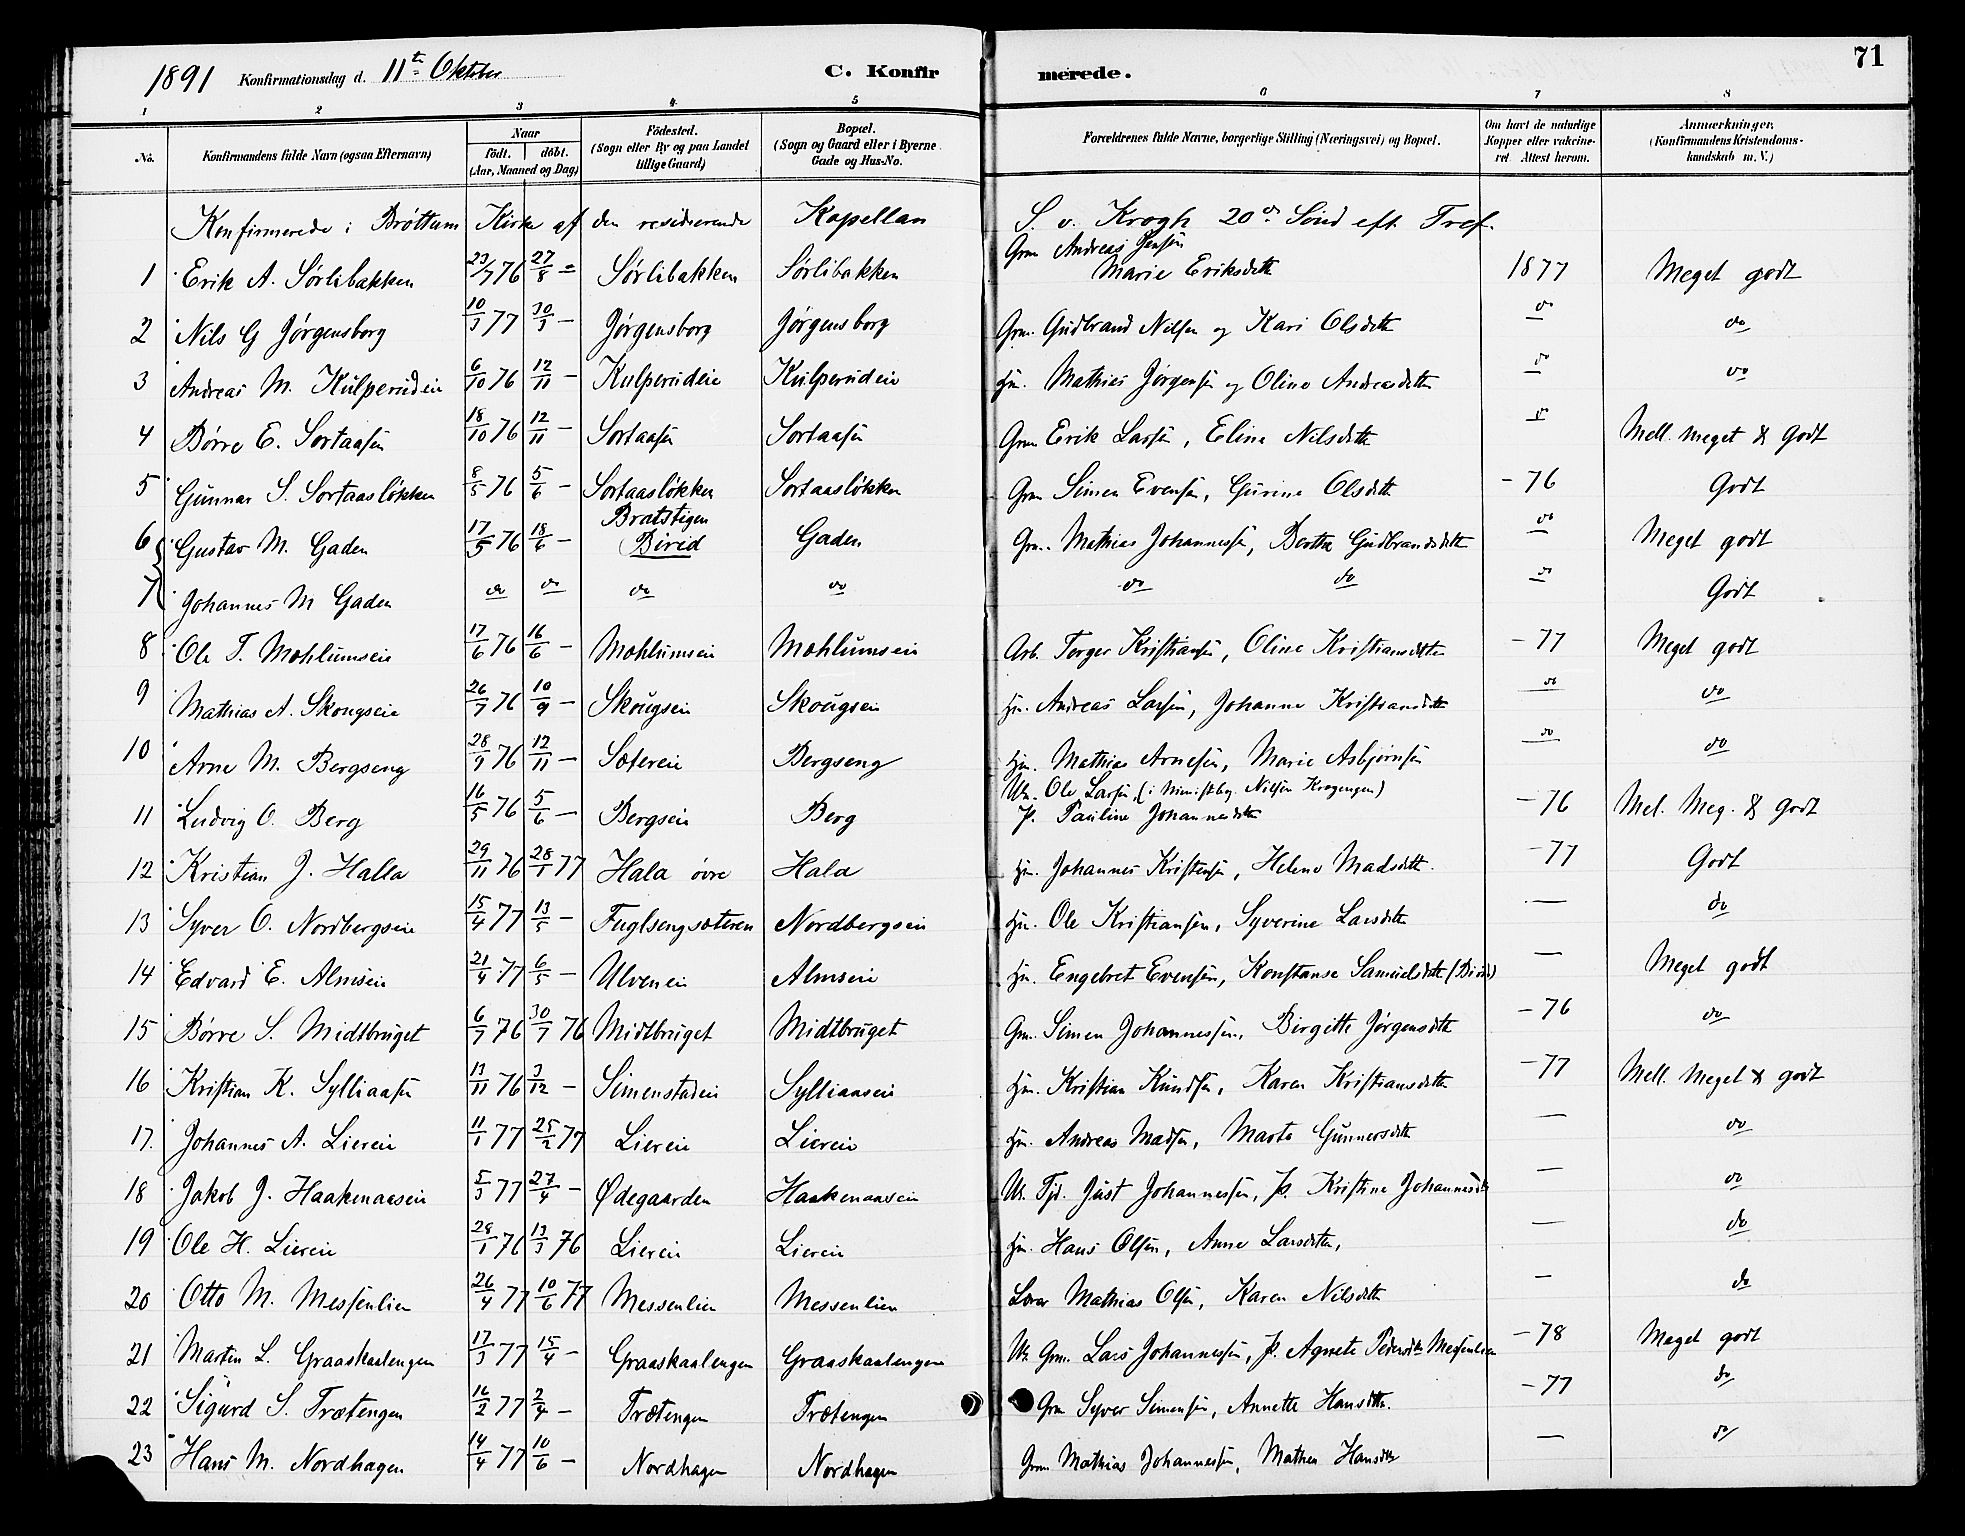 71
1891 Konfirmationsdag d. 11te Oktober C. Konfirmerede.
1 2 3 4 5 6 7 8
No. Konfirmandens fulde Navn (ogsaa Efternavn) Naar födt. döbt. (Aar, Maaned og Dag) Födested. (Sogn eller By og paa Landet tillige Gaard) Bopæl. (Sogn og Gaard eller i Byerne Gade og Hus-No. Forældrenes fulde Navne, borgerlige Stilling (Næringsvei) og Bopæl. Om havt de naturlige Kopper eller vaccineret. Attest herom. Anmærkninger. (Konfirmandens Kristendomskundskab m. V.)
Konfirmerede i Brøttum Kirke af den residserende Kapellan S. v. Krogh 20de Sönd eft. Tref.
1 Erik A. Sørlibakken 23/7 76 27/8 = Sørlibakken Sørlibakken Grm Andreas Jensen Marie Eriksdtr 1877 Meget godt
2 Nils G Jørgensborg 10/3 77 30/3 — Jørgensborg Jørgensborg Grm. Gudbrand Nilsen og Kari Olsdtr do do
3 Andreas M. Kulperudeie 6/10 76 12/11 — Kulperudeie Kulperudeie Hm. Mathias Jørgensen og Oline Andreasdtr do do
4 Børre E. Sortaasen 18/10 76 12/11 — Sortaasen Sortaasen Grm Erik Larsen, Eline Nilsdtr do Mell. meget & godt
5 Gunnar S. Sortaasløkken 8/5 76 5/6 — Sortaasløkken Sortaasløkken Grm Simen Evensen, Gurine Olsdtr - 76 Godt
6 Gustav M. Gaden 17/5 76 18/6 — Bratstigen Birid Gaden Grm. Mathias Johannessen, Berthe Gudbrandsdtr do Meget godt
7 Johannes M Gaden do do do do do do do Godt
8 Ole T. Mohlumseie 17/6 76 16/6 — Mohlumseie Mohlumseie Arb. Torger Kristiansen, Oline Kristiansdtr - 77 Meget godt
9 Mathias A. Skougseie 26/7 76 10/9 — Skougseie Skougseie Hm. Andreas Larsen, Johanne Kristiansdtr do do
10 Arne M. Bergseng 28/9 76 12/11 — Sætereie Bergseng Hm. Mathias Arnesen, Marie Asbjørnsen do do
11 Ludvig O. Berg 16/5 76 5/6 — Bergseie Berg Uk. Ole Larsen, P. Pauline Johannesdtr - 76 Mel. Meg. & godt
12 Kristian J. Halla 29/11 76 28/1 77 Hala øvre Hala Hm. Johannes Kristensen, Helene Madsdtr. - 77 Godt
13 Syver O. Nordbergseie 15/4 77 13/5 — Fuglsengsæteren Nordbergseie Hm. Ole Kristiansen, Syverine Larsdtr — do
14 Edvard E. Almseie 21/4 77 6/5 — Ulveneie Almseie Hm. Engebret Evensen, Konstanse Samuelsdtr (Birid) — Meget godt
15 Børre S. Midtbruget 6/7 76 30/7 76 Midtbruget Midtbruget Grm. Simen Johannessen, Birgitte Jørgensdtr - 76 do
16 Kristian K. Sylliaasen 13/11 76 3/12 — Simenstadeie Sylliaaseie Hm. Kristian Knudsen, Karen Kristiansdtr - 77 Mell. Meget & godt
17. Johannes A. Liereie 11/1 77 25/2 77 Liereie Liereie Hm. Andreas Madsen, Marte Gunnersdtr — do
18 Jakob J. Haakenaaseie 5/3 77 27/4 — Ødegaarden Haakenaaseie U. Tjd. Just Johannessen, P. Kristine Johannesdtr — do
19 Ole H. Liereie 28/1 76 13/3 76 Liereie Liereie Hm. Hans Olsen, Anne Larsdtr, — do
20 Otto M. Messenlien 26/4 77 10/6 77 Messenlien Messenlien Lærer Mathias Olsen, Karen Nilsdtr — do
21 Martin L. Graaskaalengen 17/3 77 15/4 — Graaskaalengen Graaskaalengen Uk Grm. Lars Johannessen, P. Agnete Pedersdtr Messenlien - 78 Meget godt
22 Sigurd S. Trætengen 16/2 77 2/4 — Trætengen Trætengen Grm Syver Simensen, Annette Hansdtr. - 77 do
23 Hans M. Nordhagen 14/4 77 10/6 — Nordhagen Nordhagen Grm Mathias Johannessen, Mathea Hansdtr — do